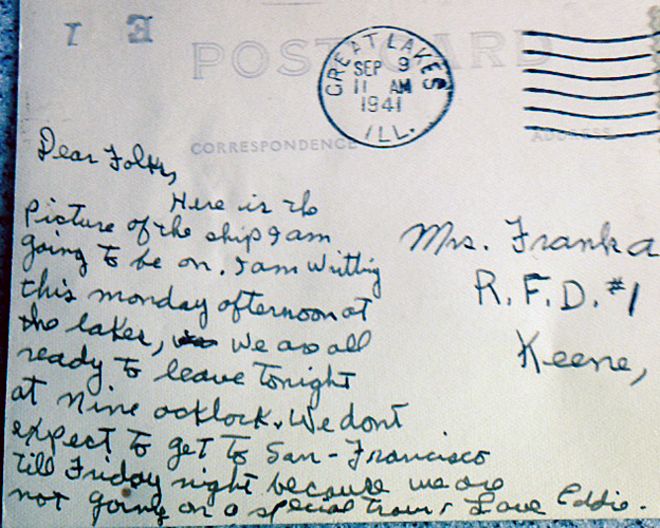 POST CARD
GREAT LAKES
SEP 9
11 AM
1941
ILL.
CORRESPONDENCE
ADDRESS
Dear Folks,
Here is the
picture of the ship I am
going to be on. I am writting
this monday afternoon at
the lakes, we are all
ready to leave tonight
at nine oclock. We dont
expect to get to San-Francisco
till Friday night because we are
not going on a special train. Love Eddie.
Mrs. Frank a
R.F.D. #1
Keene,